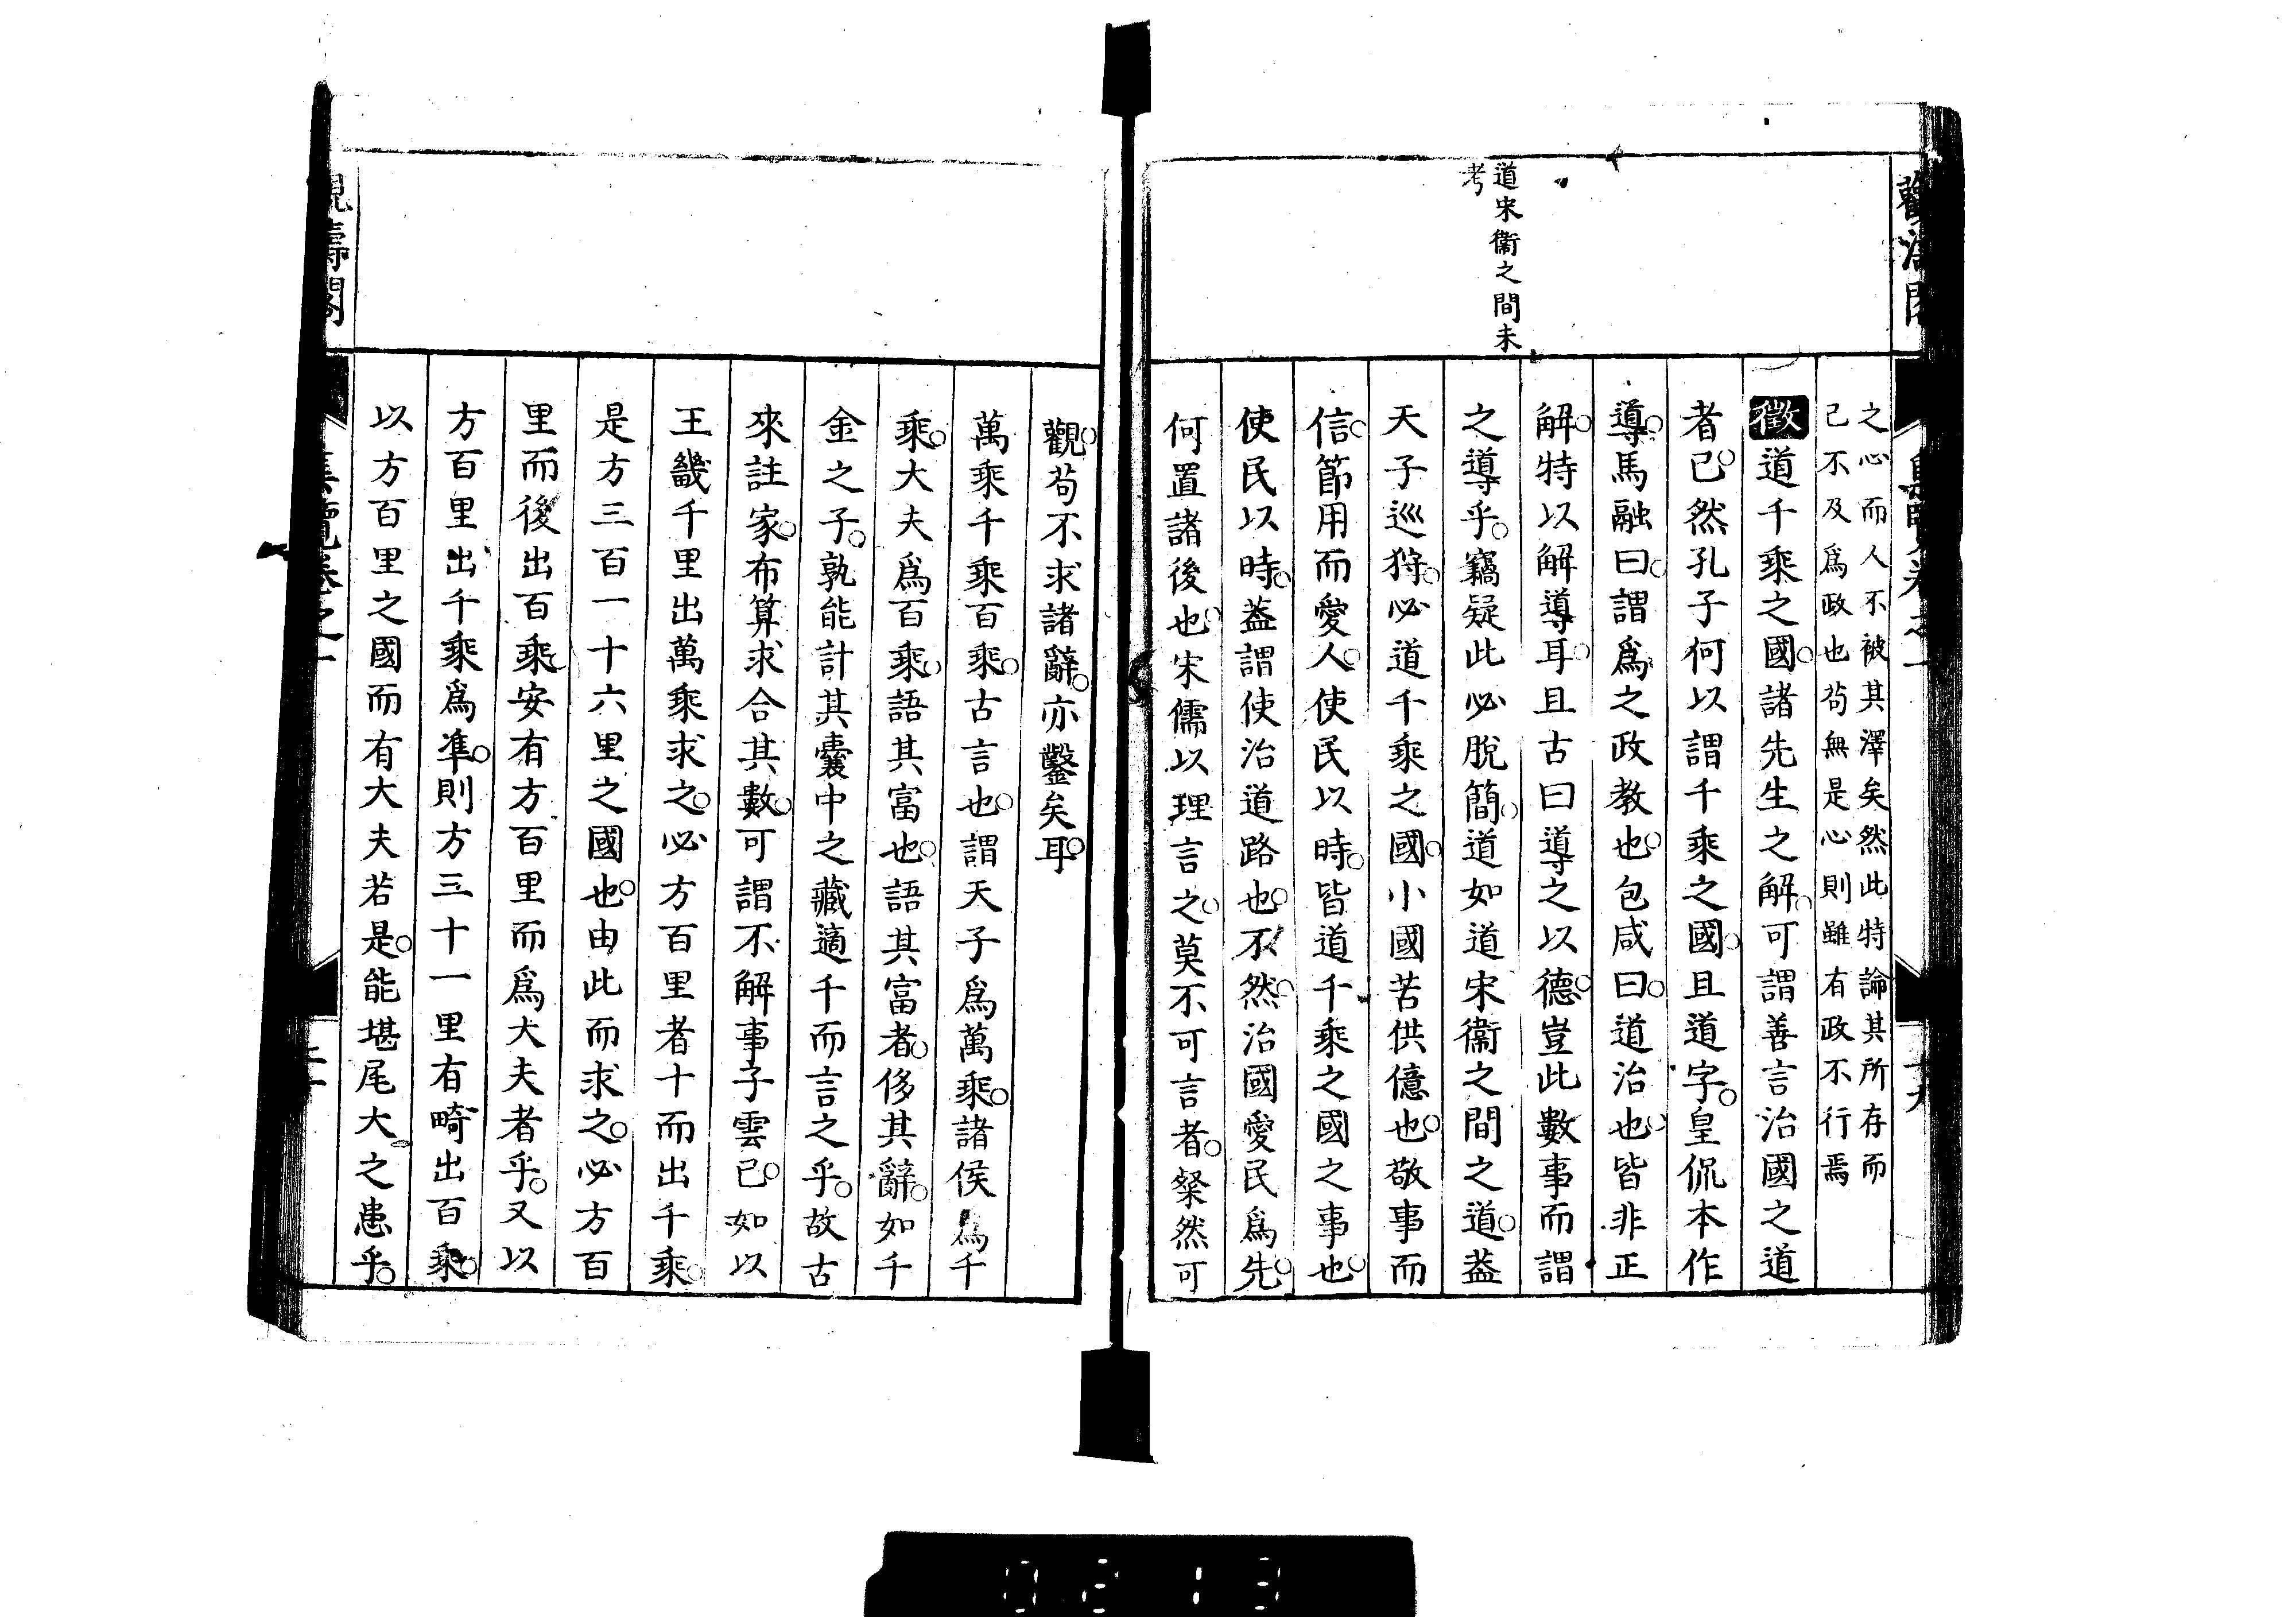 道宋衞之間未
考
之心而人不被其澤矣然此特論其所存而
已不及爲政也茍無是心則雖有政不行焉
徵道千乘之國諸先生之解可謂善言治國之道
者已然孔子何以謂千乘之國且道字皇侃本作
導馬融曰謂爲之政教也包咸曰道治也皆非正
解特以解導耳且古曰導之以德豈此數事而謂
之導乎竊疑此必脫簡道如道宋衞之間之道蓋
天子巡狩必道千乘之國小國苦供億也敬事而
信節用而愛人使民以時皆道千乘之國之事也
使民以時蓋謂使治道路也不然治國愛民爲先
何置諸後也宋儒以理言之莫不可言者粲然可
觀茍不求諸辭亦鑿矣耳
萬乘千乘百乘古言也謂天子爲萬乘諸侯爲千
乘大夫爲百乘語其富也語其富者侈其辭如千
金之子孰能計其囊中之藏適千而言之乎故古
來註家布算求合其數可謂不解事子雲已如以
王畿千里出萬乘求之必方百里者十而出千乘
是方三百一十六里之國也由此而求之必方百
里而後出百乘安有方百里而爲大夫者乎又以
方百里出千乘爲準則方三十一里有畸出百乘
以方百里之國而有大夫若是能堪尾大之患乎
覽卷之一
0213